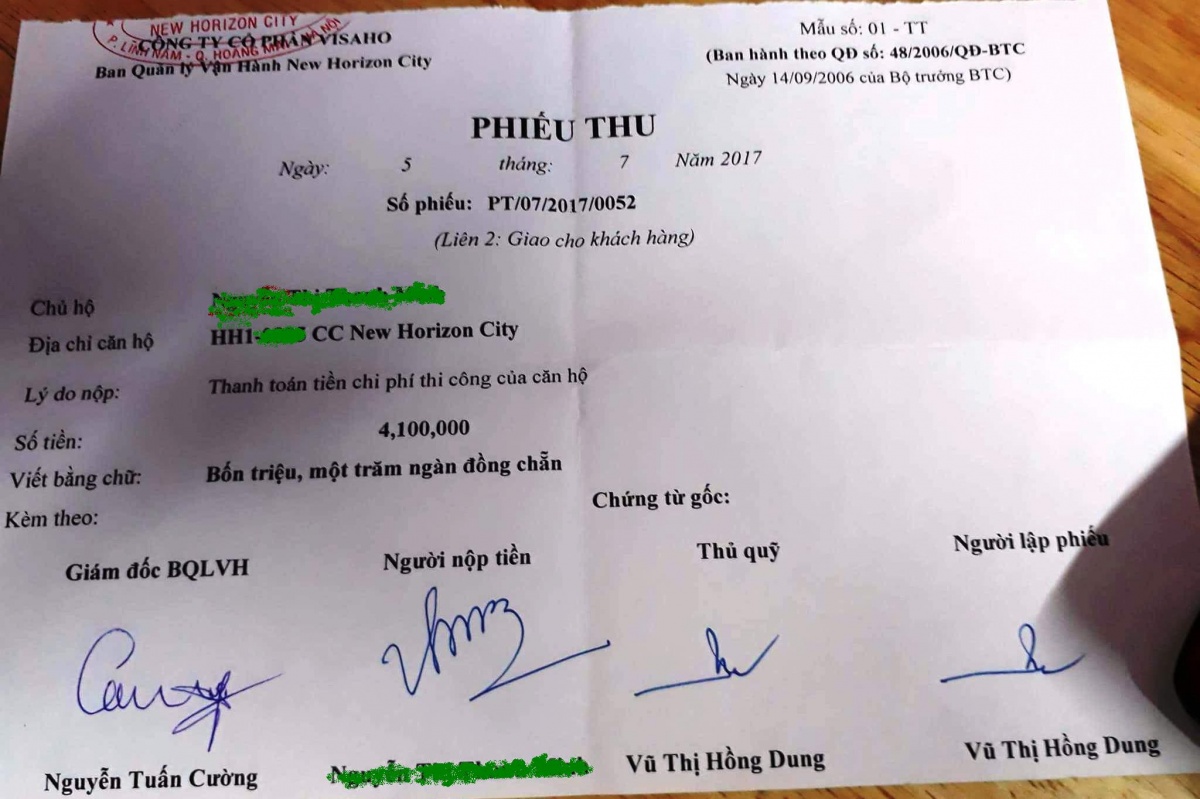 NEW HORIZON CITY
P. LĨNH NAM - Q. HOÀNG
CÔNG TY CỔ PHẦN VISAHO
Ban Quản lý Vận Hành New Horizon City
Mẫu số: 01 - TT
(Ban hành theo QĐ số: 48/2006/QĐ-BTC
Ngày 14/09/2006 của Bộ trưởng BTC)
PHIẾU THU
Ngày: 5 tháng: 7 Năm 2017
Số phiếu: PT/07/2017/0052
(Liên 2: Giao cho khách hàng)
Chủ hộ
Địa chỉ căn hộ HH1- CC New Horizon City
Lý do nộp: Thanh toán tiền chi phí thi công của căn hộ
Số tiền: 4,100,000
Viết bằng chữ: Bốn triệu, một trăm ngàn đồng chẵn
Kèm theo: Chứng từ gốc:
Giám đốc BQLVH Người nộp tiền Thủ quỹ Người lập phiếu
Nguyễn Tuấn Cường Nguyễn Vũ Thị Hồng Dung Vũ Thị Hồng Dung